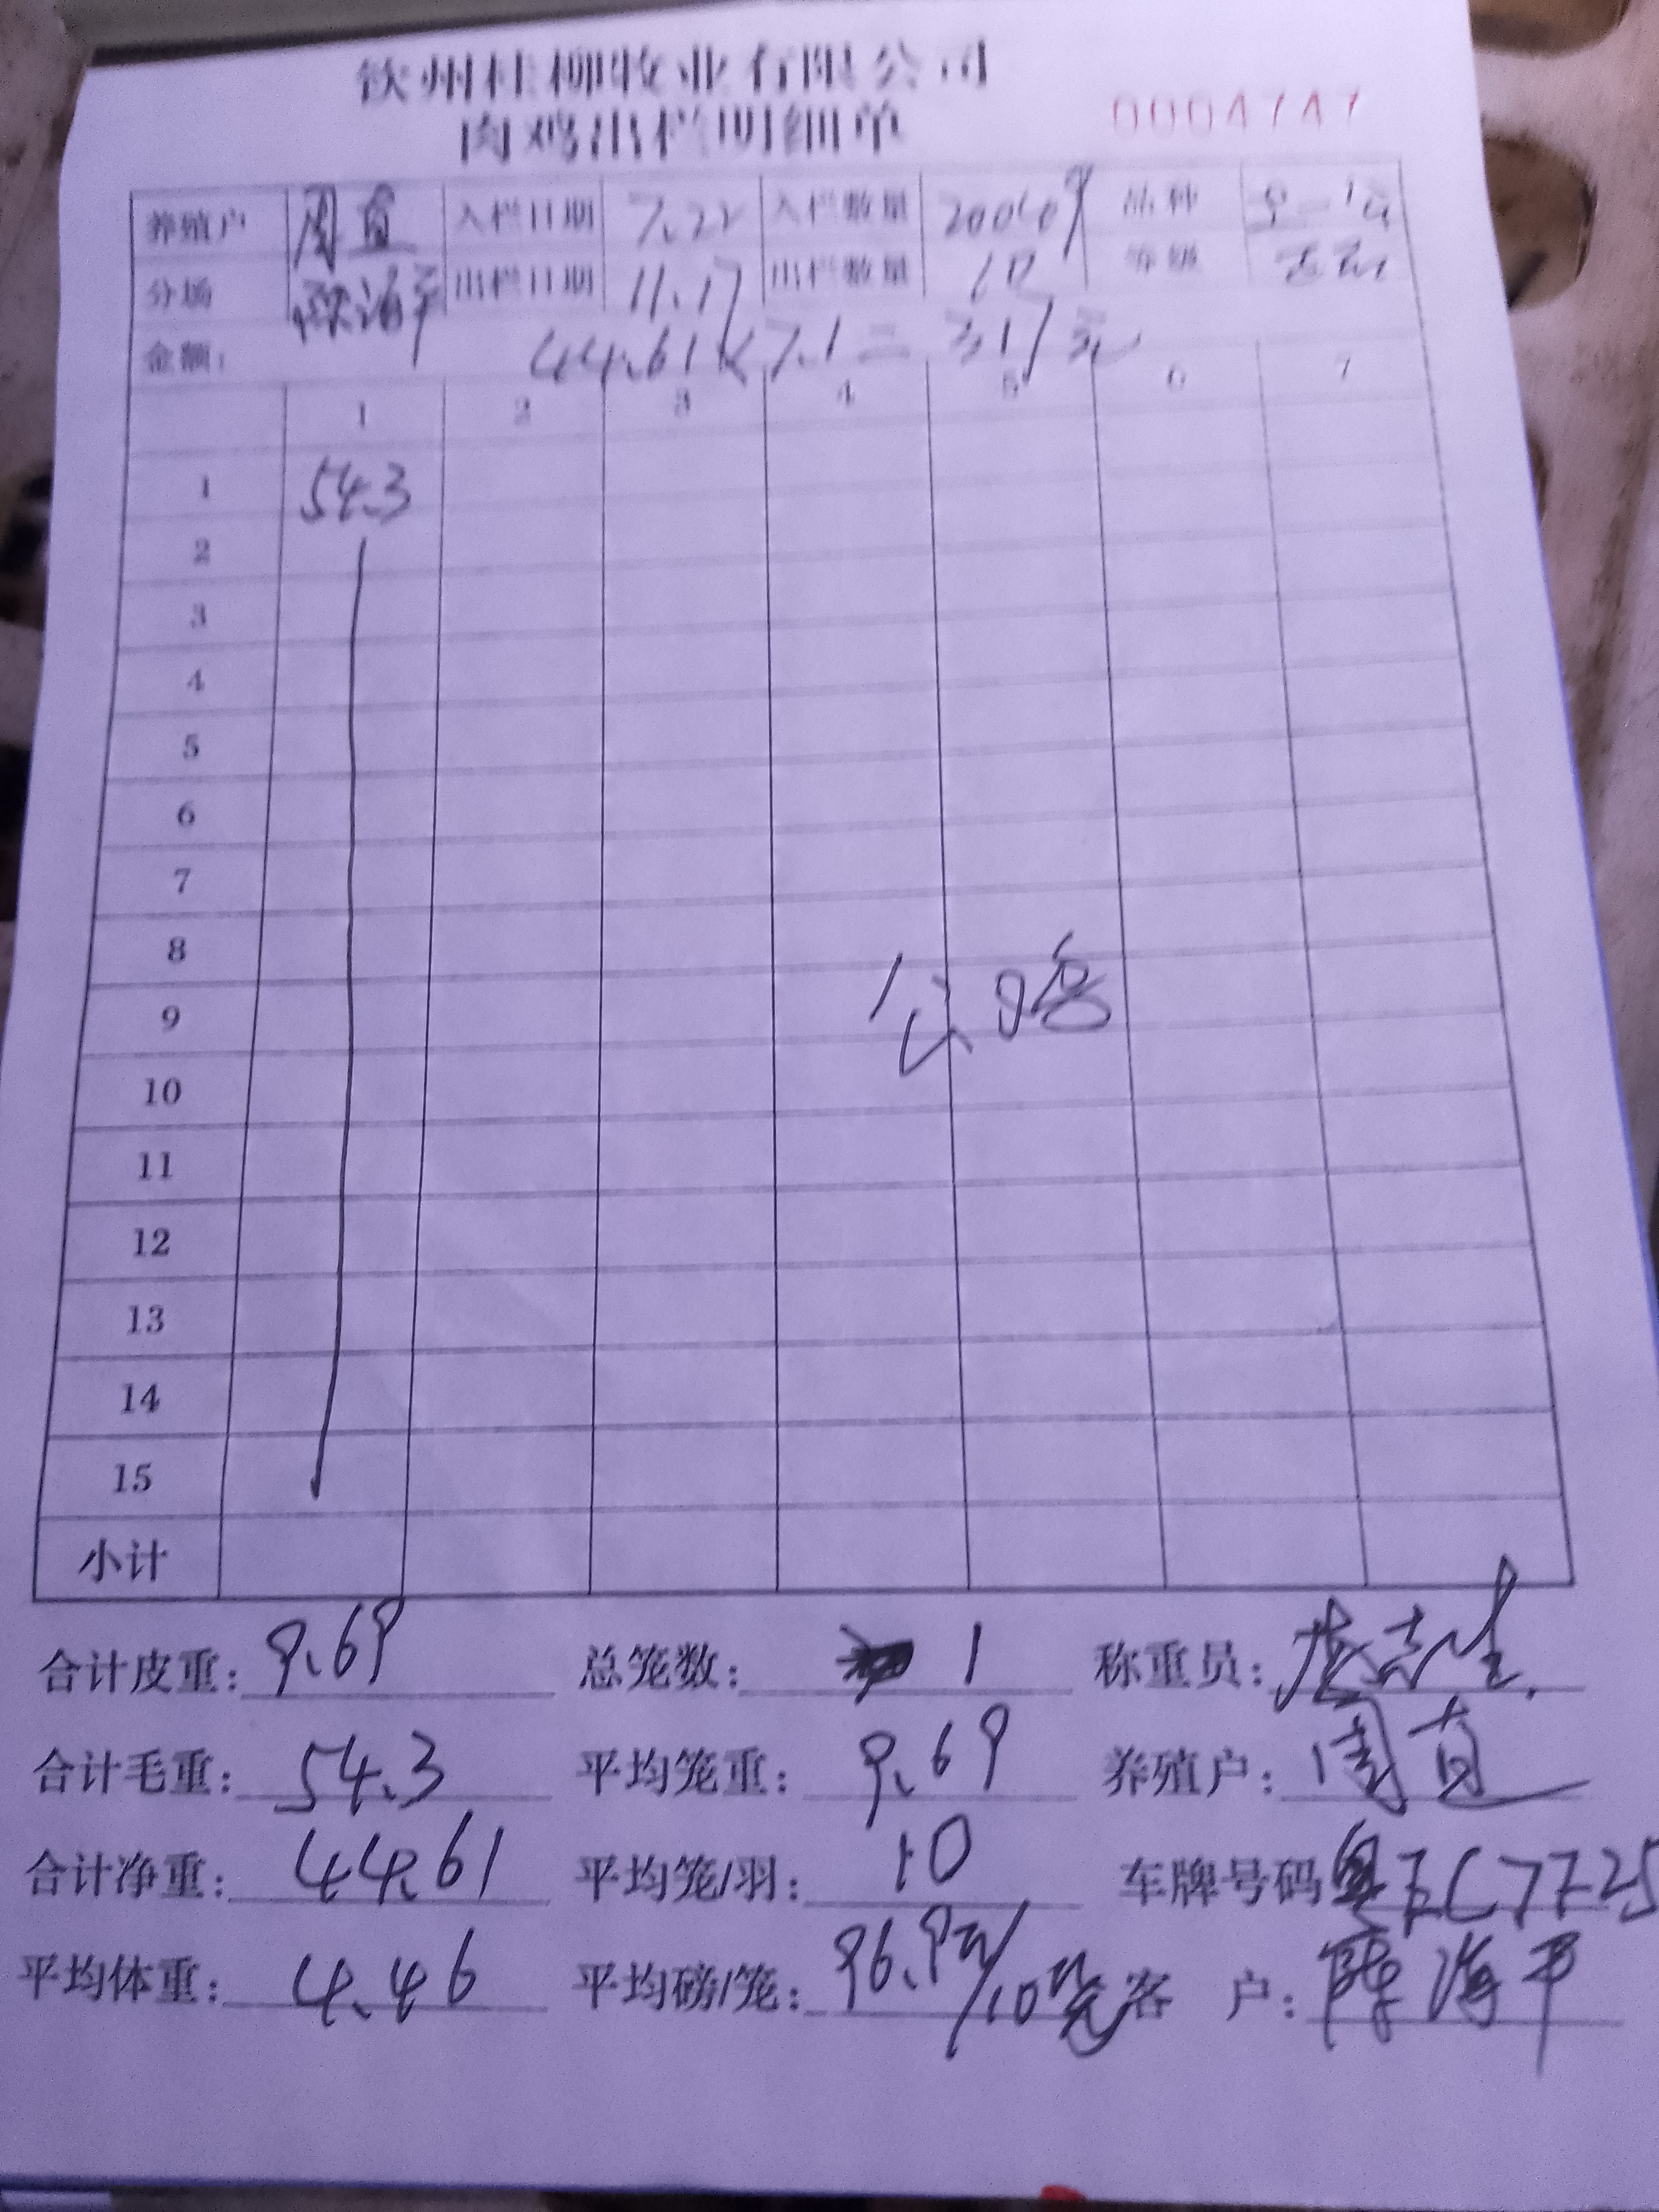 钦州桂柳牧业有限公司
肉鸡出栏明细单 0004747
养殖户 周直 入栏日期 7.22 入栏数量 品种
分场 陈海平 出栏日期 11.17 出栏数量 10 等级
金额: 44.61×7.1=317元
1 2 3 4 5 6 7
1 54.3
2
3
4
5
6
7
8
9
10
11
12
13
14
15
小计
合计皮重: 9.69 总笼数: 1 称重员:
合计毛重: 54.3 平均笼重: 9.69 养殖户: 周直
合计净重: 44.61 平均笼/羽: 10 车牌号码
平均体重: 4.46 平均磅/笼: 客 户: 陈海平